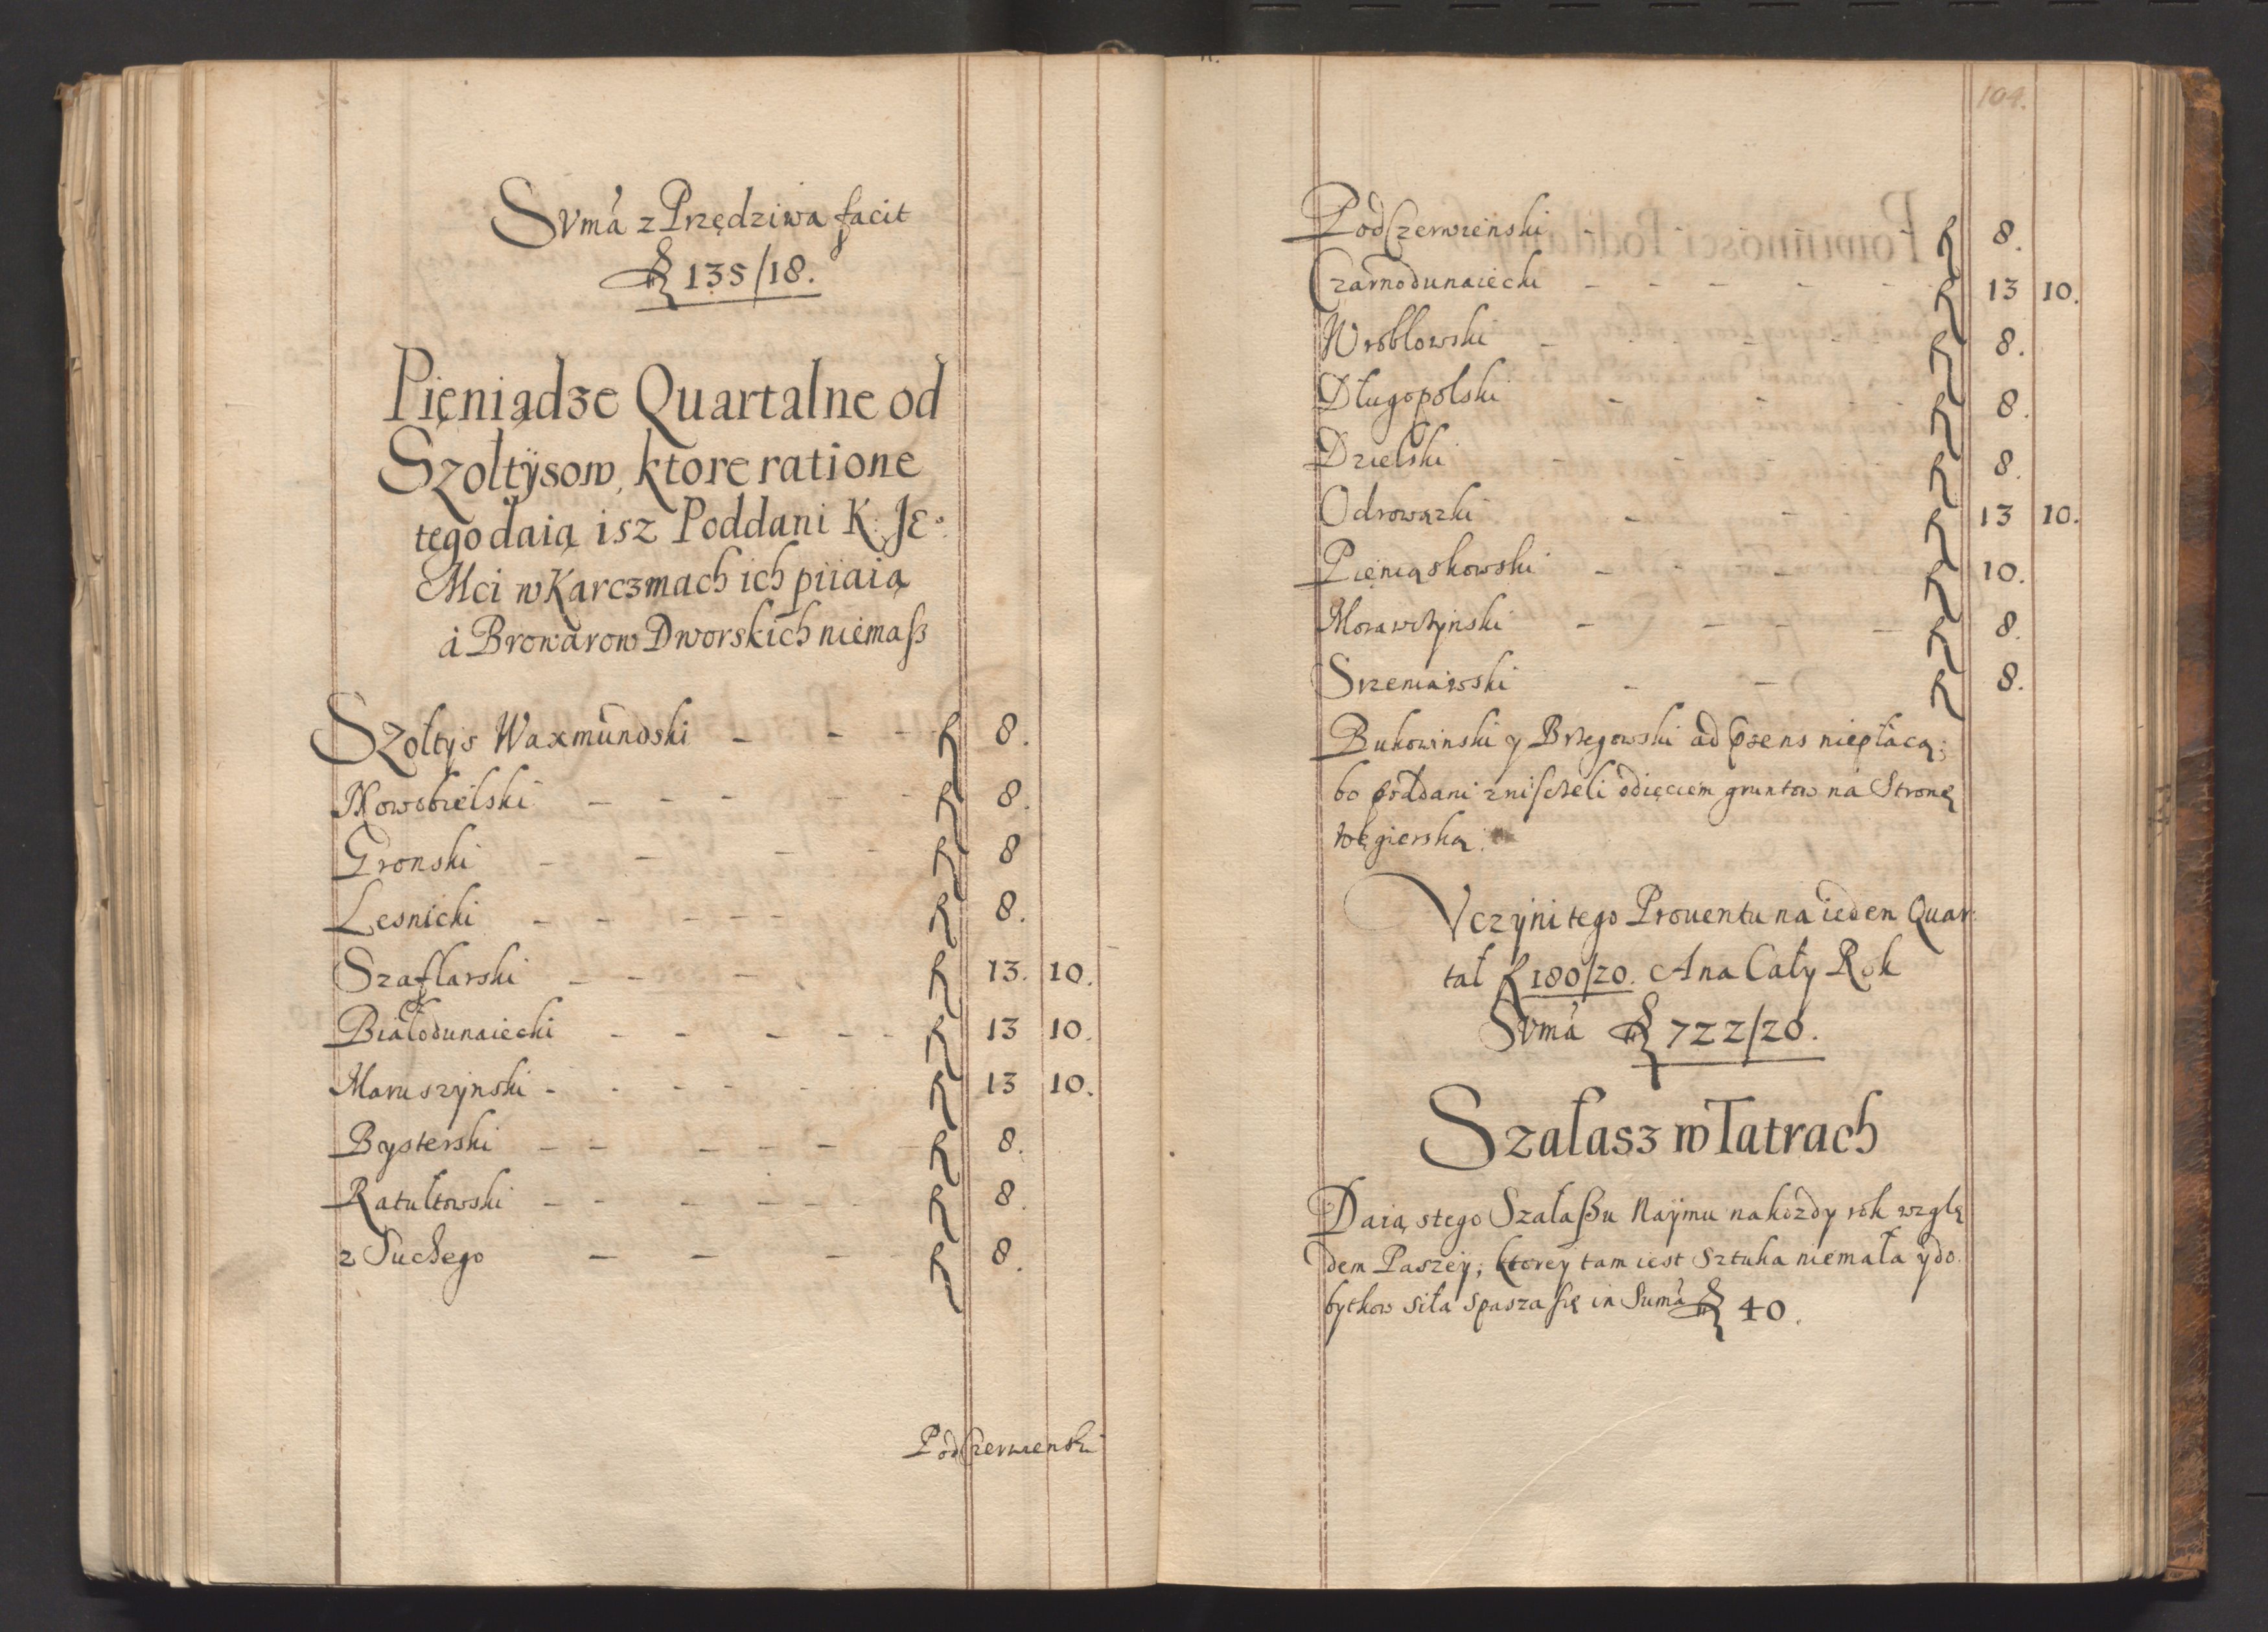 Svmá z Przędziwa facit
f 135/18.
Pięniądze Quartalne od
Szoltÿsow, ktore ratione
tęgo daią isz Poddani K. Je°
Mci w Karczmach ich piiaią
á Browarow Dworskich niemasz
Szołtys Waxmundski - - - f 8.
Nowobielski - - - - - f 8.
Gronski - - - - f 8
Lesnicki - - - - - f 8.
Szaflarski - - - f 13. 10.
Białodunaiecki - - - - - f 13 10.
Maruszynski - - - - - f 13 10.
Bysterski - - - - - f 8.
Ratułtowski - - - - - f 8.
z Suchego - - - f 8.
PodCzerwienski
104.
PodCzerwieński - - - f 8.
Czarnodunaiecki - - - - - f 13 10.
Wroblowski - - - - - f 8.
Długopolski - - - - f 8.
Dzielski - - - - f 8.
Odrowązki - - - f 13 10.
Pięniąskowski - - - f 10.
Morawczynski - - - - f 8.
Srzeniawski - - f 8.
Bukowinski y Brzegowski ad psens niepłacą;
bo poddani znisczeli odięciem gruntow ná Stronę
węgierską.
Vczyni tego Prouentu na ieden Quar:
tał f 180/20. A na Cały Rok
Svmá f 722/20.
Szałasz w Tatrach
Daią stego Szałaszu Naÿmu na kozdy rok wzglę
dem Paszey; ktorey tam iest sztuka niemała y do
bytkow siła spasza się in Sumá f 40.